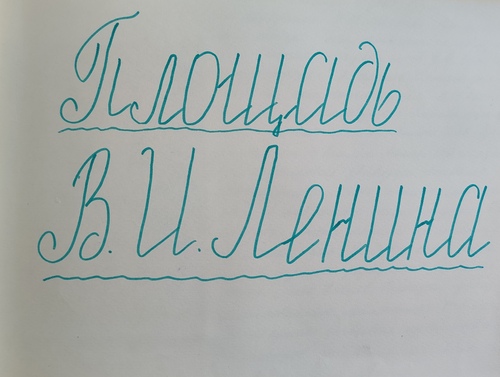 Площадь
В. И. Ленина